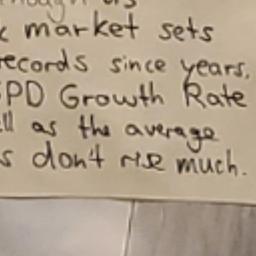 market sets
records since years.
GPD Growth Rate
as the average
don't rise much.